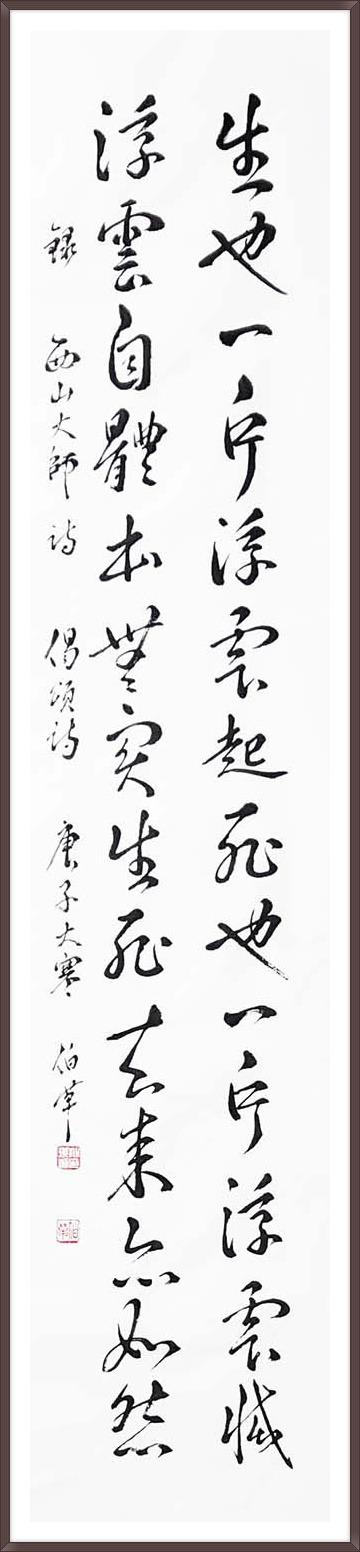 生也一片浮雲起死也一片浮雲滅
浮雲自體本無實生死去來亦如然
錄 西山大師 詩 偈頌詩 庚子大寒 伯草